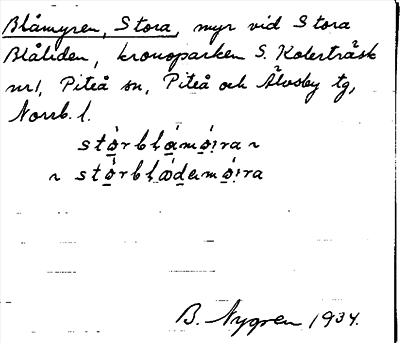 Blåmyren, Stora, myr vid Stora
Blåliden, kronoparken S. Kolerträsk
nr1, Piteå sn, Piteå och Älvsby tg,
Norrb. l.
B. Nygren 1934.